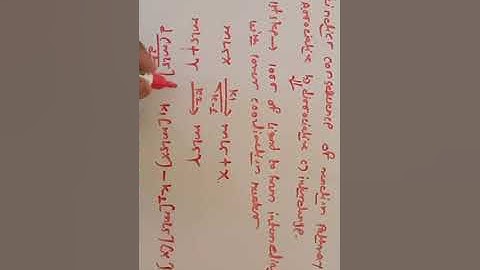 kinetics consequence of reaction Pathway
Associative b) dissociative c) interchange.
1st step → loss of ligand to form intermedia
with lower coordination number
ML5X ⇌ ML5 + X
k1
k-1
ML5 + Y → ML5Y
k2
d[ML5]
dt
k1[ML5X] - k-1[ML5][X]